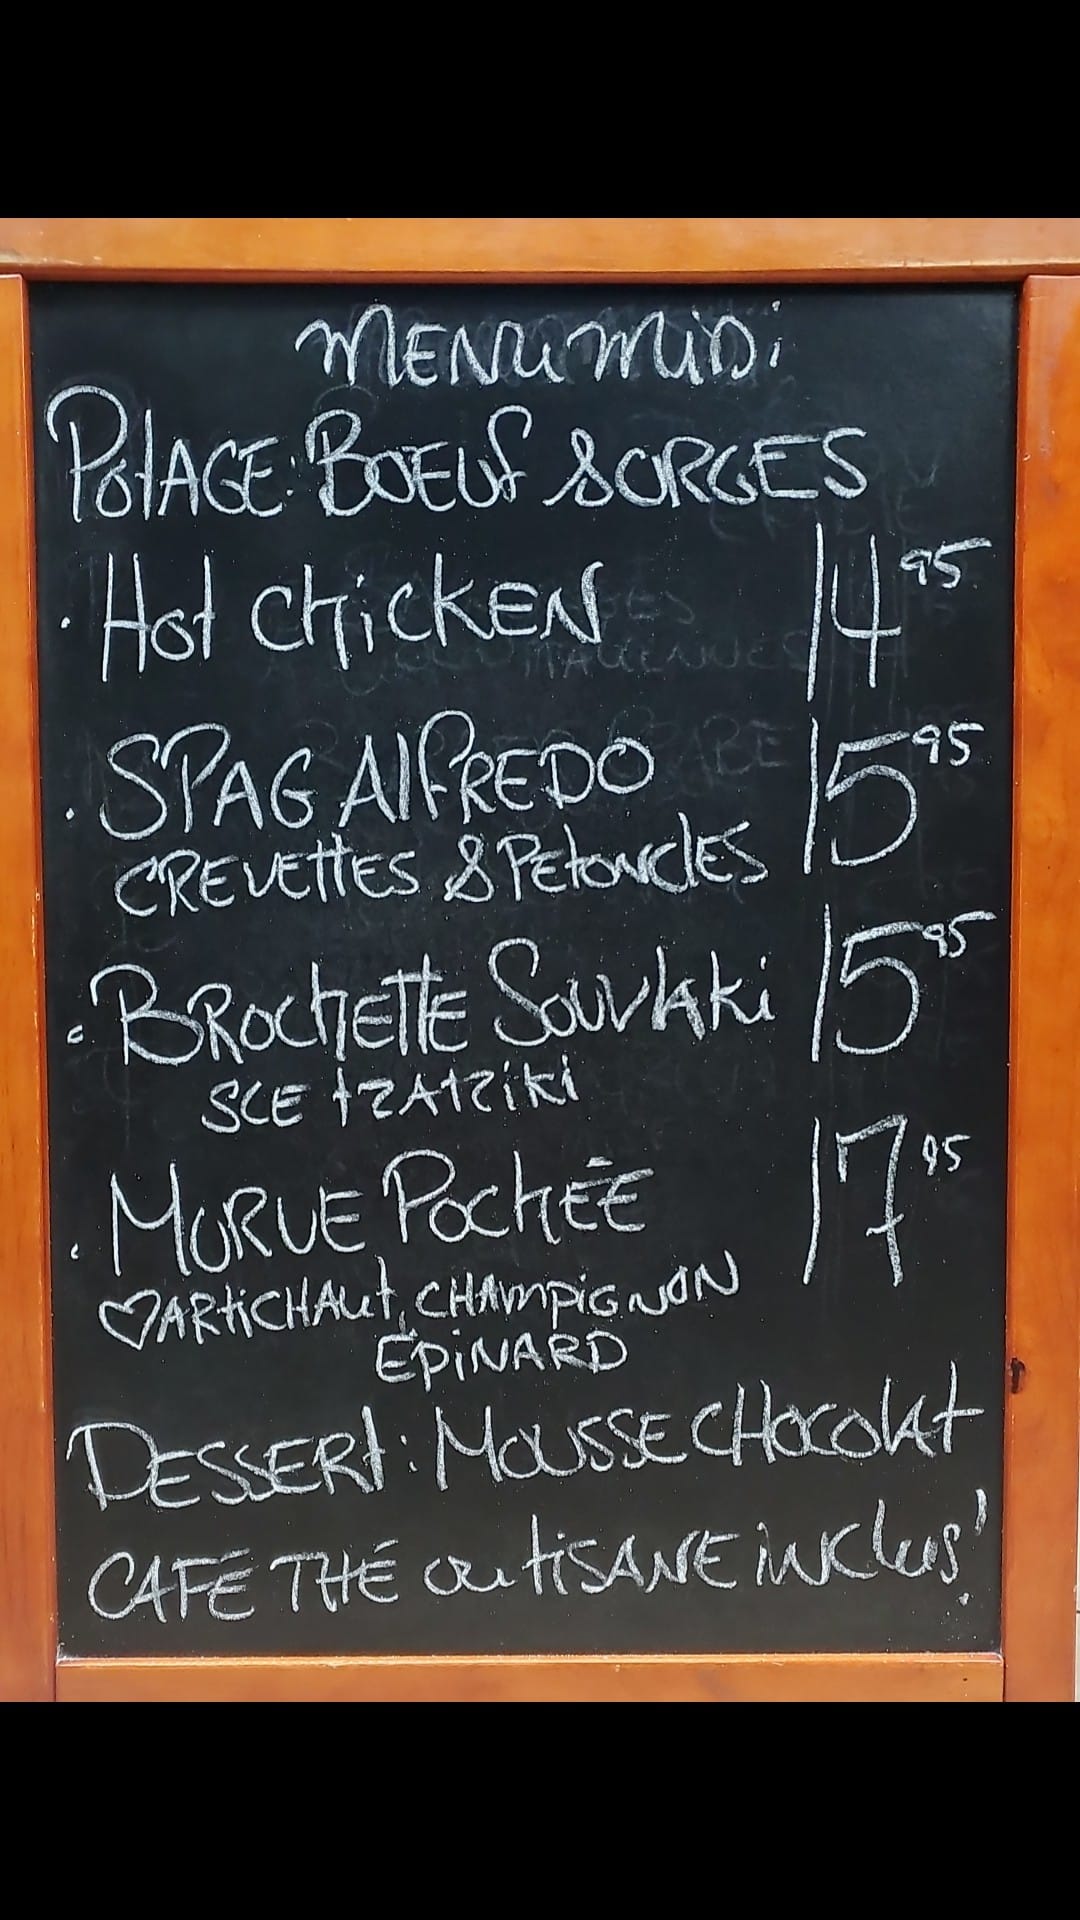 MENU MIDI
POTAGE: BOEUF & ORGES
· Hot CHICKEN 14 95
· SPAG ALFREDO 15 95
CREVETTES & PETONCLES
· BROCHETTE SOUVLAKI 15 95
SCE TZATZIKI
· MORUE POCHÉE 17 95
♡ ARTICHAUT, CHAMPIGNON
ÉPINARD
DESSERT: MOUSSE CHOCOLAT
CAFÉ THÉ OU TISANE INCLUS!